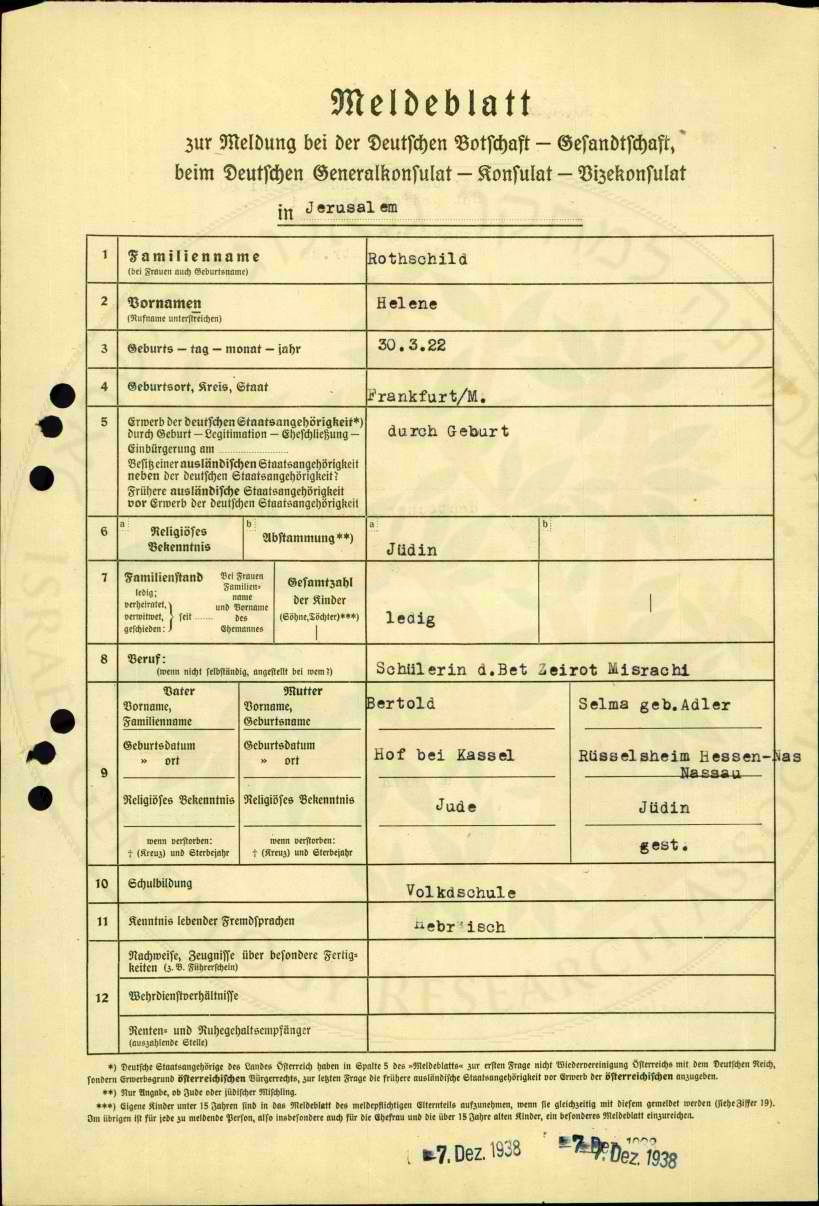 Meldeblatt
zur Meldung bei der Deutschen Botschaft — Gesandtschaft,
beim Deutschen Generalkonsulat — Konsulat — Vizekonsulat
in Jerusalem
1 Familienname
(bei Frauen auch Geburtsname)
Rothschild
2 Vornamen
(Rufname unterstreichen)
Helene
3 Geburts – tag – monat – jahr
30.3.22
4 Geburtsort, Kreis, Staat
Frankfurt/M.
5 Erwerb der deutschen Staatsangehörigkeit*)
durch Geburt – Legitimation – Eheschließung –
Einbürgerung am
Besitz einer ausländischen Staatsangehörigkeit
neben der deutschen Staatsangehörigkeit?
Frühere ausländische Staatsangehörigkeit
vor Erwerb der deutschen Staatsangehörigkeit
durch Geburt
6 a Religiöses
Bekenntnis
b Abstammung**)
a Jüdin
b
7 Familienstand
ledig;
verheiratet,
verwitwet,
geschieden:
seit
Bei Frauen
Familien-
name
und Vorname
des
Ehemannes
Gesamtzahl
der Kinder
(Söhne, Töchter)***)
ledig
8 Beruf:
(wenn nicht selbständig, angestellt bei wem?)
Schülerin d.Bet Zeirot Misrachi
9
Vater
Vorname,
Familienname
Mutter
Vorname,
Geburtsname
Bertold
Selma geb.Adler
Geburtsdatum
» ort
Geburtsdatum
» ort
Hof bei Kassel
Rüsselsheim Hessen-Nas
Nassau
Religiöses Bekenntnis
Religiöses Bekenntnis
Jude
Jüdin
wenn verstorben:
† (Kreuz) und Sterbejahr
wenn verstorben:
† (Kreuz) und Sterbejahr
gest.
10 Schulbildung
Volkdschule
11 Kenntnis lebender Fremdsprachen
Hebräisch
12
Nachweise, Zeugnisse über besondere Fertig-
keiten (z. B. Führerschein)
Wehrdienstverhältnisse
Renten- und Ruhegehaltsempfänger
(auszahlende Stelle)
*) Deutsche Staatsangehörige des Landes Österreich haben in Spalte 5 des »Meldeblatts« zur ersten Frage nicht Wiedervereinigung Österreichs mit dem Deutschen Reich,
sondern Erwerbsgrund österreichischen Bürgerrechts, zur letzten Frage die frühere ausländische Staatsangehörigkeit vor Erwerb der österreichischen anzugeben.
**) Nur Angabe, ob Jude oder jüdischer Mischling.
***) Eigene Kinder unter 15 Jahren sind in das Meldeblatt des meldepflichtigen Elternteils aufzunehmen, wenn sie gleichzeitig mit diesem gemeldet werden (siehe Ziffer 19).
Im übrigen ist für jede zu meldende Person, also insbesondere auch für die Ehefrau und die über 15 Jahre alten Kinder, ein besonderes Meldeblatt einzureichen.
-7. Dez. 1938
-7. Dez. 1938
7. Dez. 1938
ISRAEL GENEALOGY RESEARCH ASSOCIATION